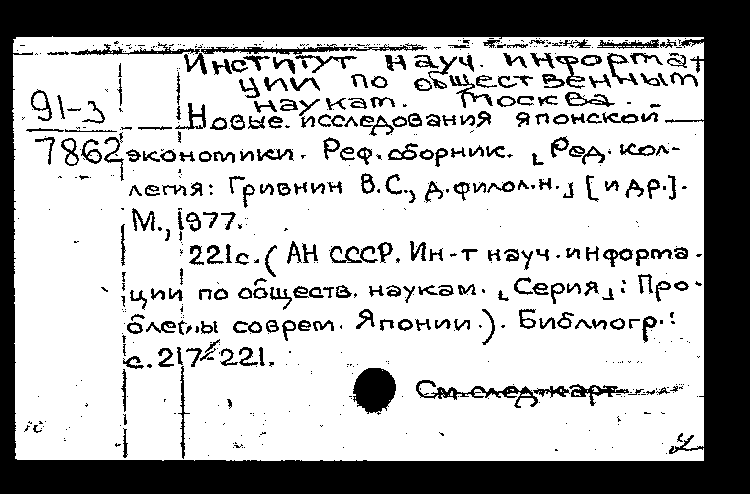 Институт науч. информа-
ции по общественным
наукам. Москва.
91-3
7862
Новые исследования японской
экономики. Реф. сборник. [Ред. кол-
легия: Гривнин В.С., д.филол.н.] [и др.].
М., 1977.
221с. (АН СССР. Ин-т науч. информа-
ции по обществ. наукам. [Серия]: Про-
блемы соврем. Японии.). Библиогр.:
с. 217-221.
См след карт